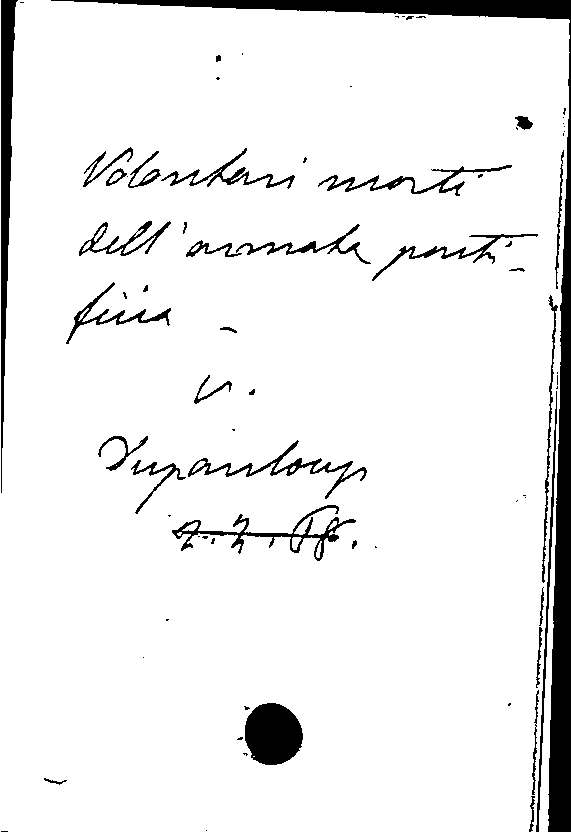 Volontari morti
dell'armata ponti-
ficia -
v.
Dupanloup